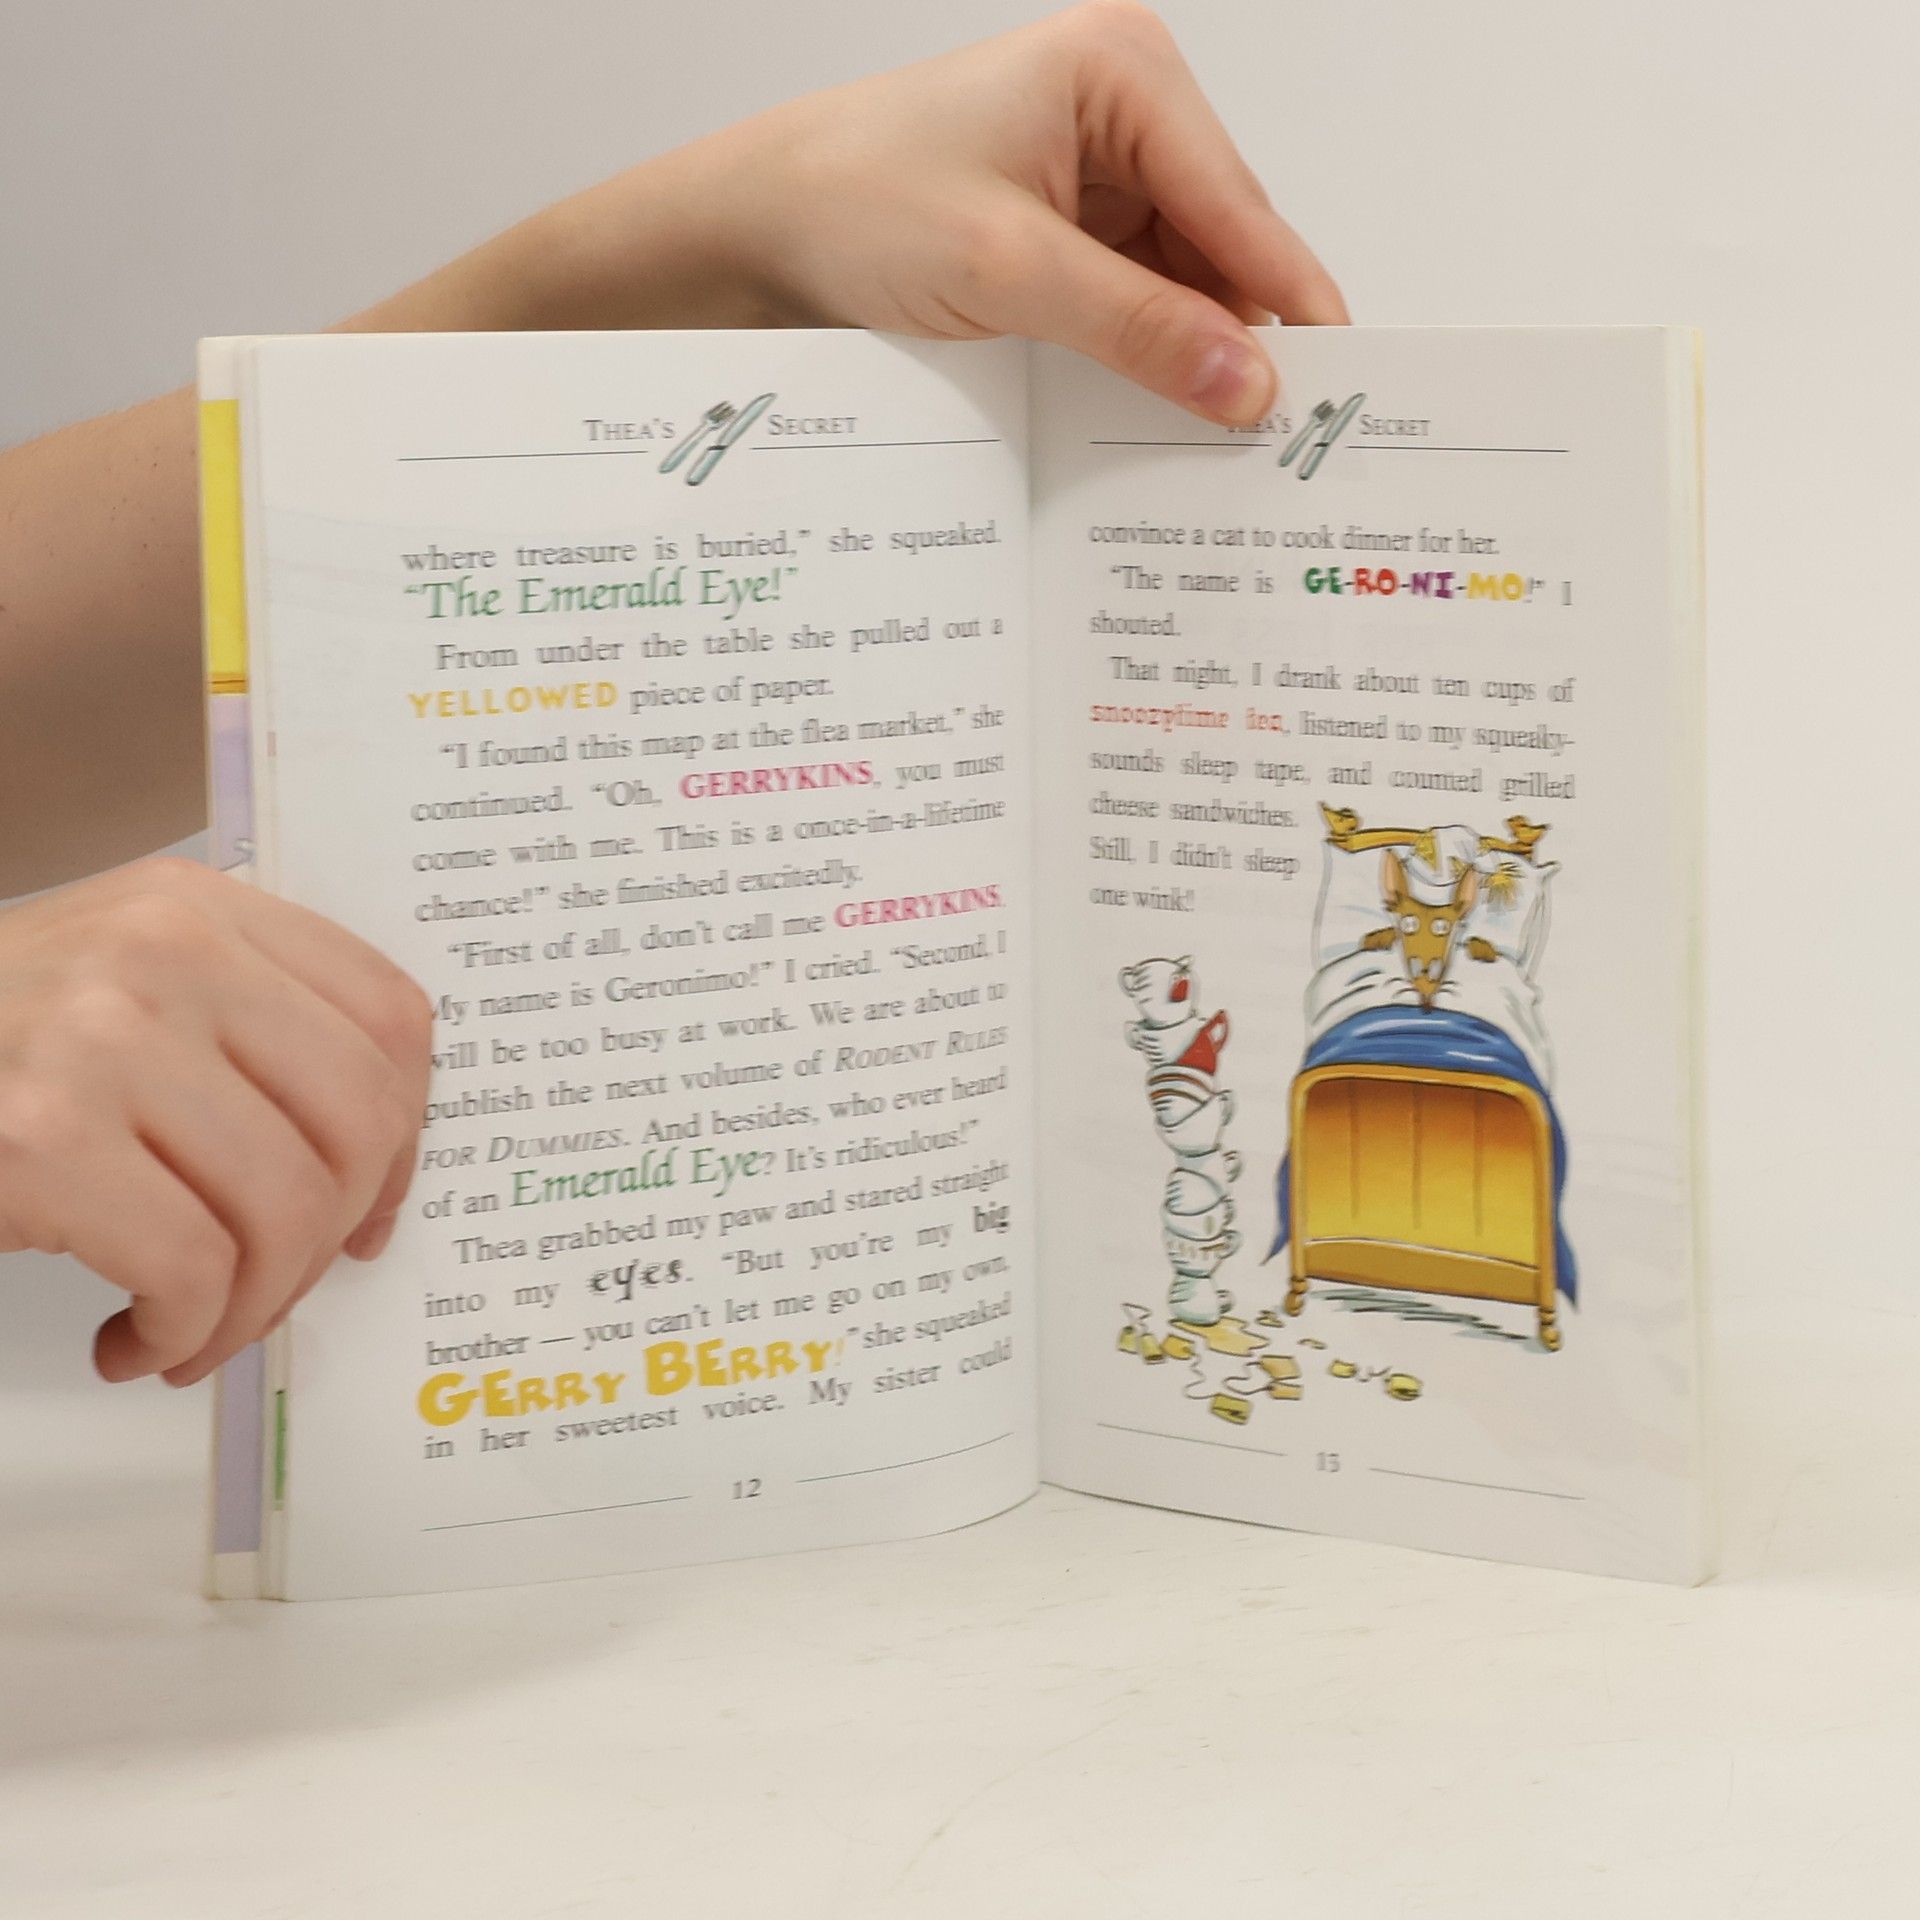 THEA'S SECRET
where treasure is buried,” she squeaked.
“The Emerald Eye!”
From under the table she pulled out a
YELLOWED piece of paper.
“I found this map at the flea market,” she
continued. “Oh, GERRYKINS, you must
come with me. This is a once-in-a-lifetime
chance!” she finished excitedly.
“First of all, don't call me GERRYKINS.
My name is Geronimo!” I cried. “Second, I
will be too busy at work. We are about to
publish the next volume of RODENT RULES
FOR DUMMIES. And besides, who ever heard
of an Emerald Eye? It's ridiculous!”
Thea grabbed my paw and stared straight
into my eyes. “But you're my big
brother — you can't let me go on my own,
GERRY BERRY!” she squeaked
in her sweetest voice. My sister could
12
THEA'S SECRET
convince a cat to cook dinner for her.
“The name is GE-RO-NI-MO!” I
shouted.
That night, I drank about ten cups of
snoozytime tea, listened to my squeaky-
sounds sleep tape, and counted grilled
cheese sandwiches.
Still, I didn't sleep
one wink!
13